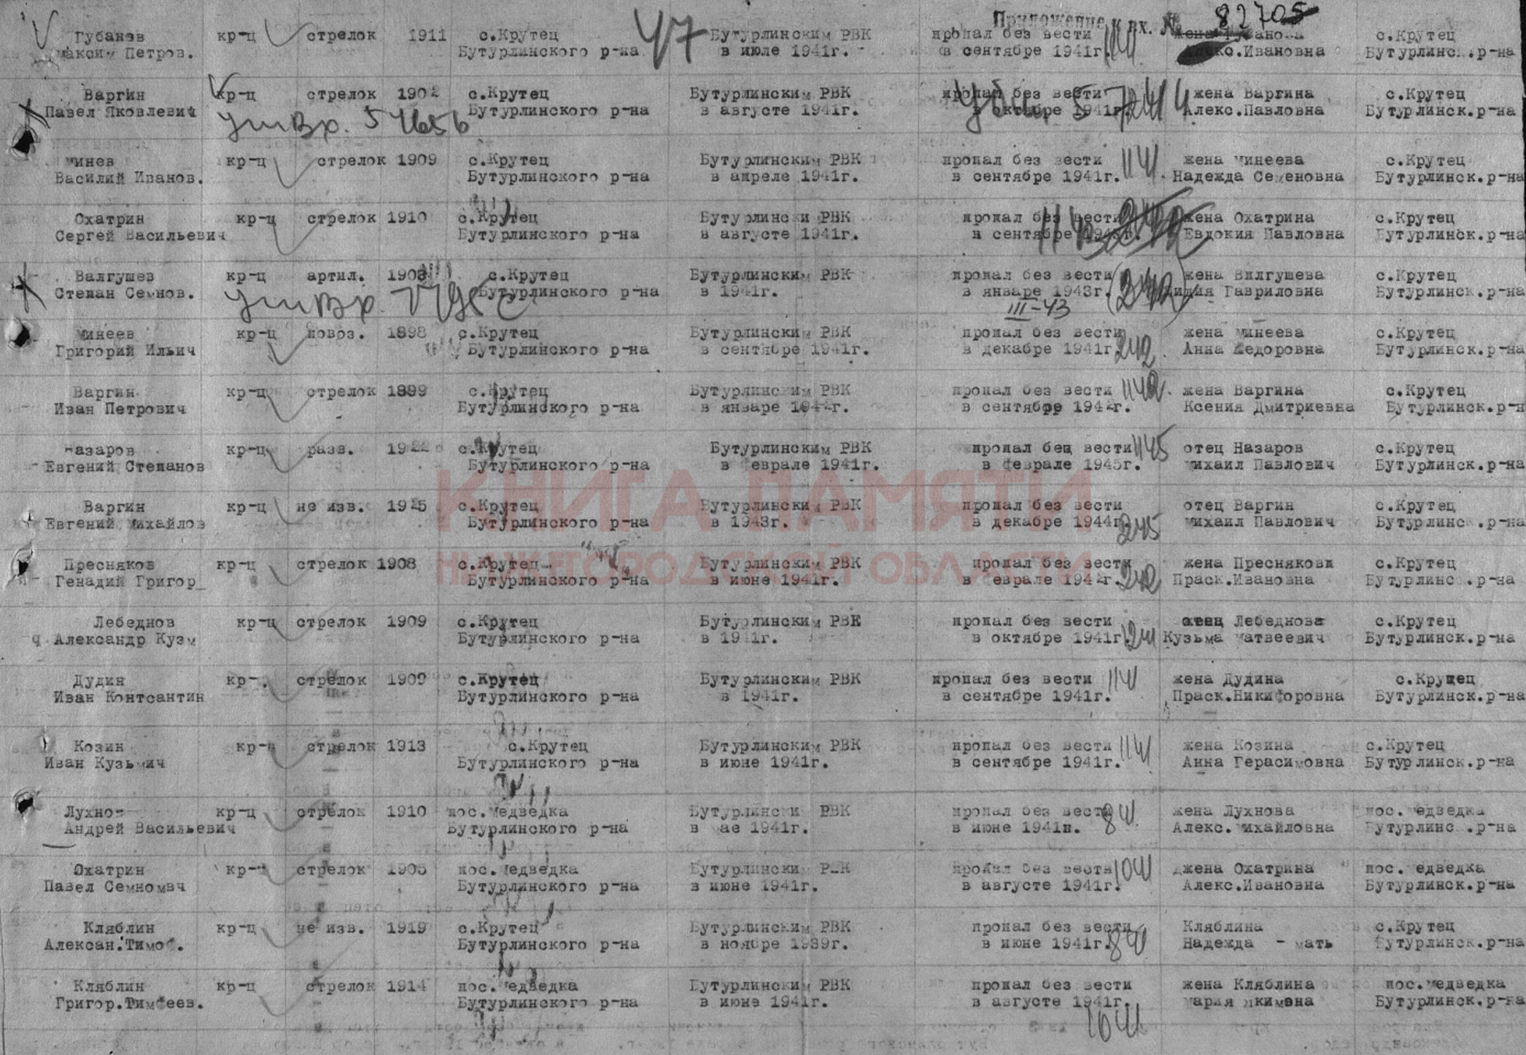 Приложение вх. № 82705
47
Губанов кр-ц стрелок 1911 с.Крутец Бутурлинским РВК пропал без вести жена Губанова с.Крутец
Максим Петров. Бутурлинского р-на в июле 1941г. в сентябре 1941г. Алекс.Ивановна Бутурлинск.р-на
Варгин кр-ц стрелок 1902 с.Крутец Бутурлинским РВК пропал без вести жена Варгина с.Крутец
Павел Яковлевич Бутурлинского р-на в августе 1941г. в октябре 1941г. Алекс.Павловна Бутурлинск.р-на
минев кр-ц стрелок 1909 с.Крутец Бутурлинским РВК пропал без вести жена минеева с.Крутец
Василий Иванов. Бутурлинского р-на в апреле 1941г. в сентябре 1941г. Надежда Семеновна Бутурлинск.р-на
Охатрин кр-ц стрелок 1910 с.Крутец Бутурлински РВК пропал без вести жена Охатрина с.Крутец
Сергей Васильевич Бутурлинского р-на в августе 1941г. в сентябре Евдокия Павловна Бутурлинск.р-на
Валгушев кр-ц артил. 1908 с.Крутец Бутурлинским РВК пропал без вести жена Вилгушева с.Крутец
Степан Семнов. Бутурлинского р-на в 1941г. в январе 1943г. Лидия Гавриловна Бутурлинск.р-на
III-43
минеев кр-ц повоз. 1898 с.Крутец Бутурлинским РВК пропал без вести жена минеева с.Крутец
Григорий Ильич Бутурлинского р-на в сентябре 1941г. в декабре 1941г. 242 Анна Федоровна Бутурлинск.р-на
Варгин кр-ц стрелок 1899 с.Крутец Бутурлинским РВК пропал без вести 1142 жена Варгина с.Крутец
Иван Петрович Бутурлинского р-на в январе 1942г. в сентябре 1942г. Ксения Дмитриевна Бутурлинск.р-н
назаров кр-ц разв. 1922 с.Крутец Бутурлинским РВК пропал без вести 1145 отец Назаров с.Крутец
Евгений Степанов Бутурлинского р-на в феврале 1941г. в феврале 1945г. михаил Павлович Бутурлинск.р-на
Варгин кр-ц не изв. 1925 с.Крутец Бутурлинским РВК пропал без вести отец Варгин с.Крутец
Евгений михайлов Бутурлинского р-на в 1943г. в декабре 1944г. 245 михаил Павлович Бутурлинс.р-на
Пресняков кр-ц стрелок 1908 с.Крутец Бутурлинским РВК пропал без вести жена Преснякова с.Крутец
Генадий Григор Бутурлинского р-на в июне 1941г. в феврале 1942г. 242 Праск.Ивановна Бутурлинс.р-на
Лебеднов кр-ц стрелок 1909 с.Крутец Бутурлинским РВК пропал без вести отец Лебеднова с.Крутец
Александр Кузм Бутурлинского р-на в 1941г. в октябре 1941г. Кузьма матвеевич Бутурлинск.р-на
Дудин кр-ц стрелок 1909 с.Крутец Бутурлинским РВК пропал без вести 1141 жена Дудина с.Крутец
Иван Контсантин Бутурлинского р-на в 1941г. в сентябре 1941г. Праск.Никифоровна Бутурлинск.р-на
Козин кр-ц стрелок 1913 с.Крутец Бутурлинским РВК пропал без вести 1141 жена Козина с.Крутец
Иван Кузьмич Бутурлинского р-на в июне 1941г. в сентябре 1941г. Анна Герасимовна Бутурлинск.р-на
Лухнов кр-ц стрелок 1910 пос.медведка Бутурлински РВК пропал без вести 841 жена Лухнова пос.медведка
Андрей Васильевич Бутурлинского р-на в мае 1941г. в июне 1941г. Алекс.михайловна Бутурлинс.р-на
Охатрин кр-ц стрелок 1905 пос.медведка Бутурлинским РВК пропал без вести 1041 жена Охатрина пос.медведка
Павел Семномвч Бутурлинского р-на в июне 1941г. в августе 1941г. Алекс.Ивановна Бутурлинск.р-на
Кляблин кр-ц не изв. 1919 с.Крутец Бутурлинским РВК пропал без вести Кляблина с.Крутец
Алексан.Тимоф. Бутурлинского р-на в ноябре 1939г. в июне 1941г. 841 Надежда - мать Бутурлинск.р-на
Кляблин кр-ц стрелок 1914 пос.медведка Бутурлинским РВК пропал без вести жена Кляблина пос.медведка
Григор.Тимфеев. Бутурлинского р-на в июне 1941г. в августе 1941г. мария Якимвна Бутурлинск.р-на
1041
КНИГА ПАМЯТИ
НИЖЕГОРОДСКОЙ ОБЛАСТИ